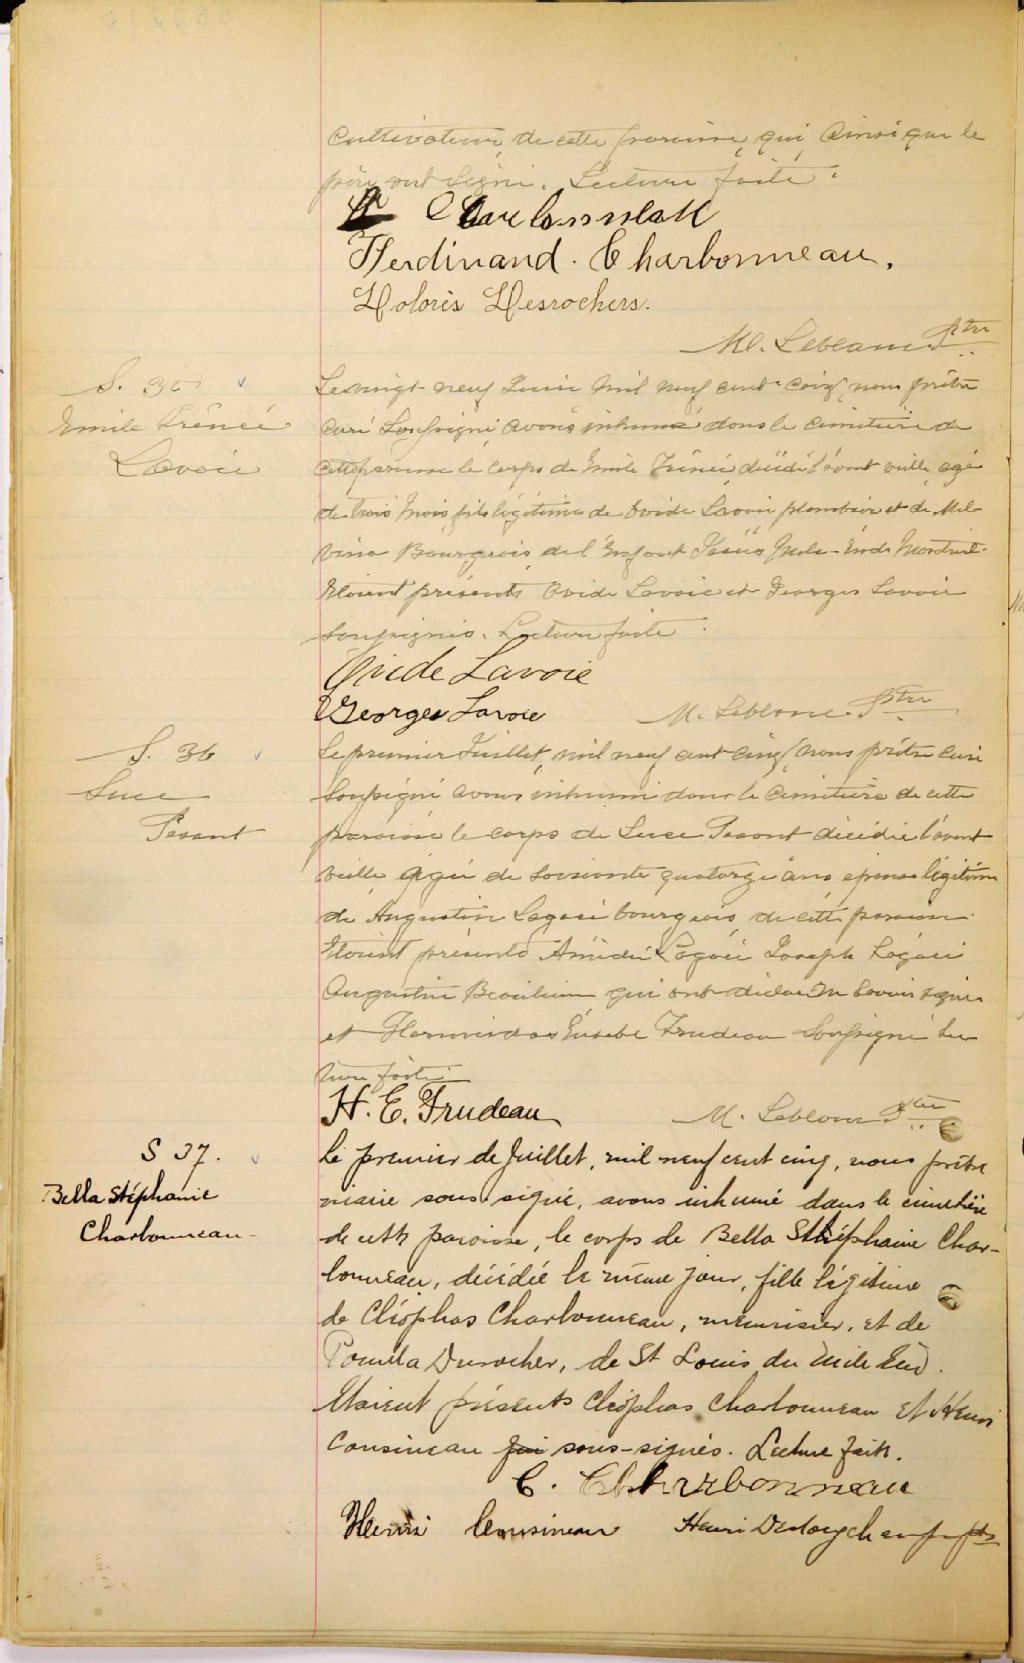 Cultivateur, de cette paroisse, qui, ainsi que le
père ont signé. Lecture faite.
C Charbonneau
Ferdinand. Charbonneau.
Doloris Desrochers.
M. Leblanc Ptre
S. 35
Emile Irénée
Lavoie
Le vingt-neuf Juin mil neuf cent-cinq, nous prêtre
curé soussigné avons inhumé dans le cimetière de
cette paroisse le corps de Emile Irénée décédé l'avant veille, agé
de trois mois, fils légitime de Ovide Lavoie plombier et de Mel-
vina Bourgeois, de l'Enfant Jésus Mile-End Montréal.
Etaient présents Ovide Lavoie et Georges Lavoie
soussignés. Lecture faite.
Ovide Lavoie
Georges Lavoie
M. Leblanc Ptre
S. 36
Luce
Pesant
Le premier Juillet, mil neuf cent cinq, nous prêtre curé
soussigné avons inhumé dans le cimetière de cette
paroisse le corps de Luce Pesant décédée l'avant
veille agée de soixante quatorze ans épouse légitime
de Augustin Lagacé bourgeois, de cette paroisse.
Etaient présents Amédé Lagacé Joseph Lagacé
Augustin qui ont déclaré ne savoir signer
et Hormisdas Eusèbe Trudeau soussigné Lec
ture faite
H. E. Trudeau
M. Leblanc Ptre
S 37.
Bella Stéphanie
Charbonneau-
Le premier de Juillet, mil neuf cent cinq, nous prêtre
vicaire sous-signé, avons inhumé dans le cimetière
de cette paroisse, le corps de Bella Stéphanie Char-
bonneau, décédée le même jour, fille légitime
de Cléophas Charbonneau, menuisier, et de
Poméla Durocher, de St Louis du Mile End.
Etaient présents Cléophas Charbonneau et Henri
Cousineau qui sous-signés. Lecture faite.
C. Charbonneau
Henri Cousineau Henri Deslongchamps ptre